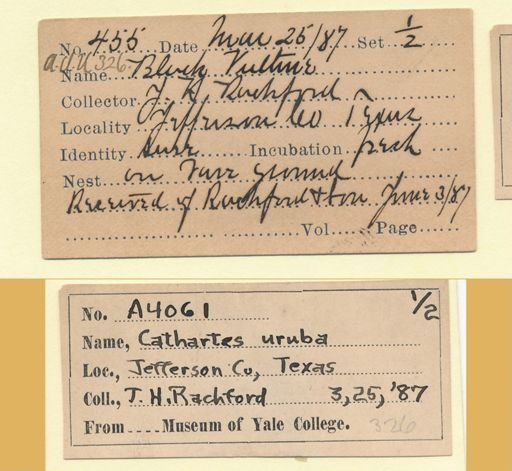 No. 455 Date Mar 25/87 Set 1/2
a.o.u 326
Name Black Vulture
Collector J H Rachford
Locality Jefferson Co Texas
Identity sure Incubation fresh
Nest on bare ground
Received of Rachford & son June 3/87
Vol Page
No. A4061 1/2
Name, Cathartes uruba
Loc., Jefferson Co, Texas
Coll., J. H. Rachford 3, 25, '87
From Museum of Yale College. 326